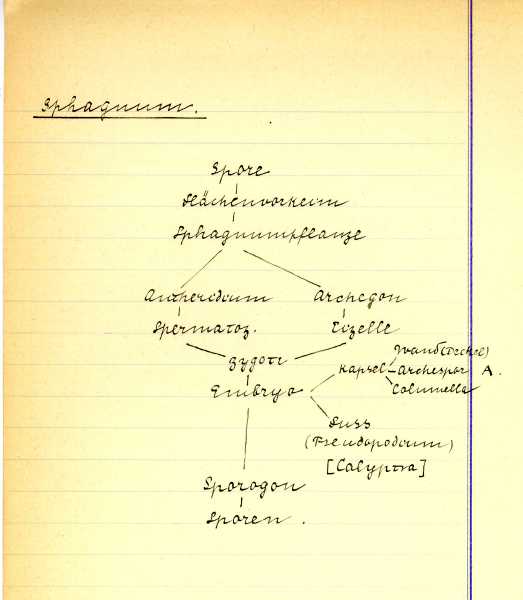 Sphagnum.
Spore
Flächenvorkeim
Sphagnumpflanze
Antheridium Archegon
Spermatoz. Eizelle
Zygote
Wand (Deckel)
Kapsel Archespor A.
Columella
Embryo
Fuss
(Pseudopodium)
[Calyptra]
Sporogon
Sporen.